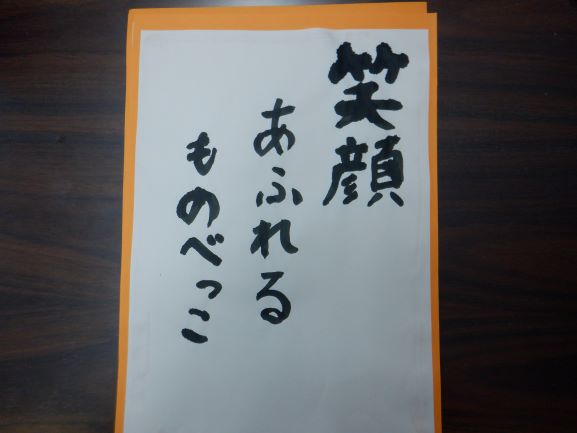 笑顔
あふれる
ものべっこ